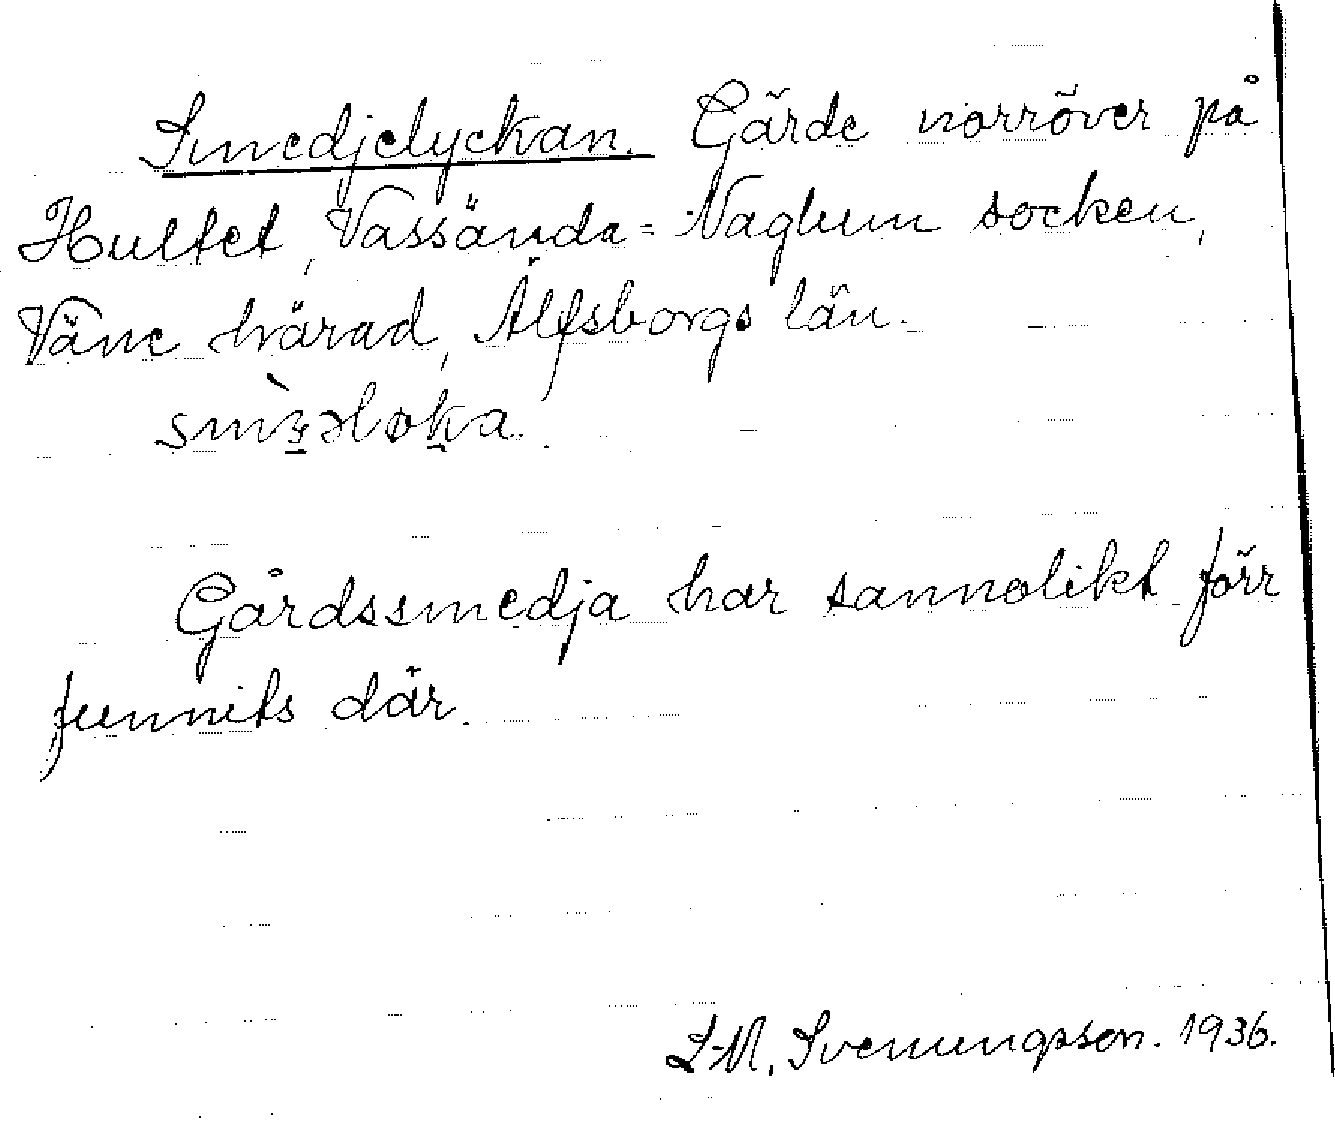 Smedjelyckan. Gärde norröver på
Hultet, Vassända=Naglum socken,
Väne härad, Älfsborgs län.
Gårdssmedja har sannolikt förr
funnits där.
Svenungsson. 1936.